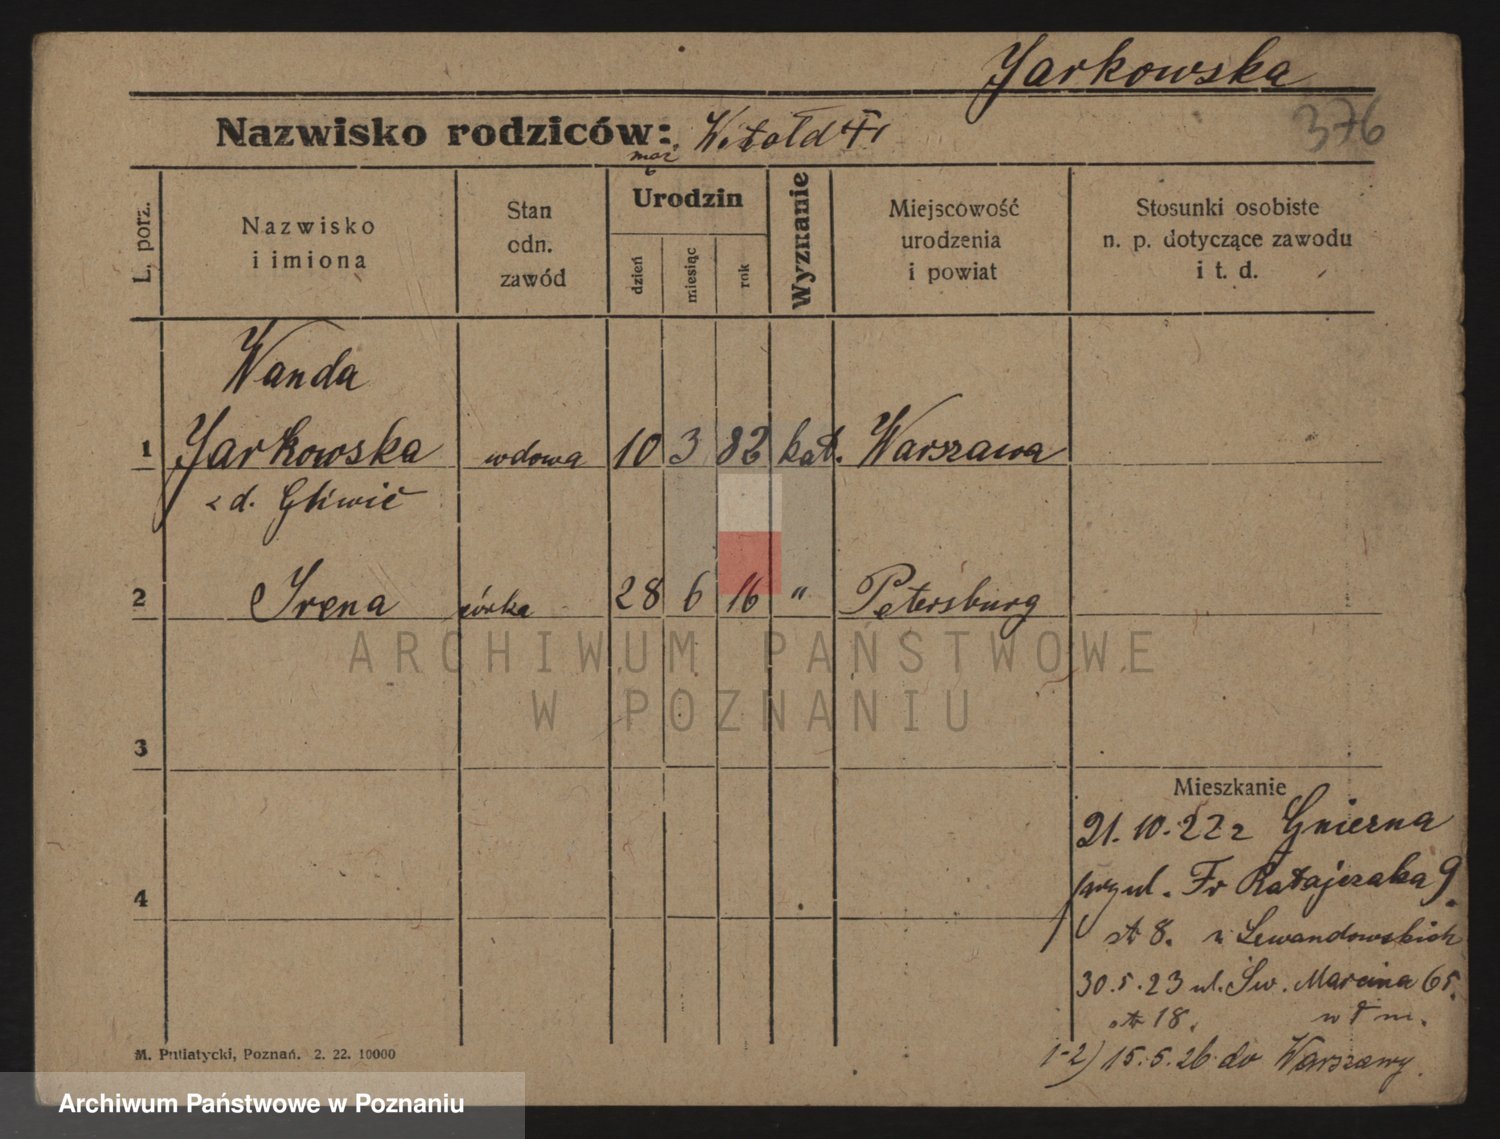 Yarkowska
376
Nazwisko rodziców: Witold Fr
mąż
L. porz.
Nazwisko
i imiona
Stan
odn.
zawód
Urodzin
dzień
miesiąc
rok
Wyznanie
Miejscowość
urodzenia
i powiat
Stosunki osobiste
n. p. dotyczące zawodu
i t. d.
Wanda
1 Yarkowska wdowa 10 3 82 kat. Warszawa
z d. Gliwić
2 Irena córka 28 6 16 " Petersburg
ARCHIWUM PAŃSTWOWE
W POZNANIU
3
Mieszkanie
21.10.22 z Gniezna
ul. Fr Ratajczaka 9.
4
8. u Lewandowskich
30.5.23 ul. Św. Marcina 65.
18. w m.
1-2) 15.5.26 do Warszawy.
M. Putiatycki, Poznań. 2. 22. 10000
Archiwum Państwowe w Poznaniu